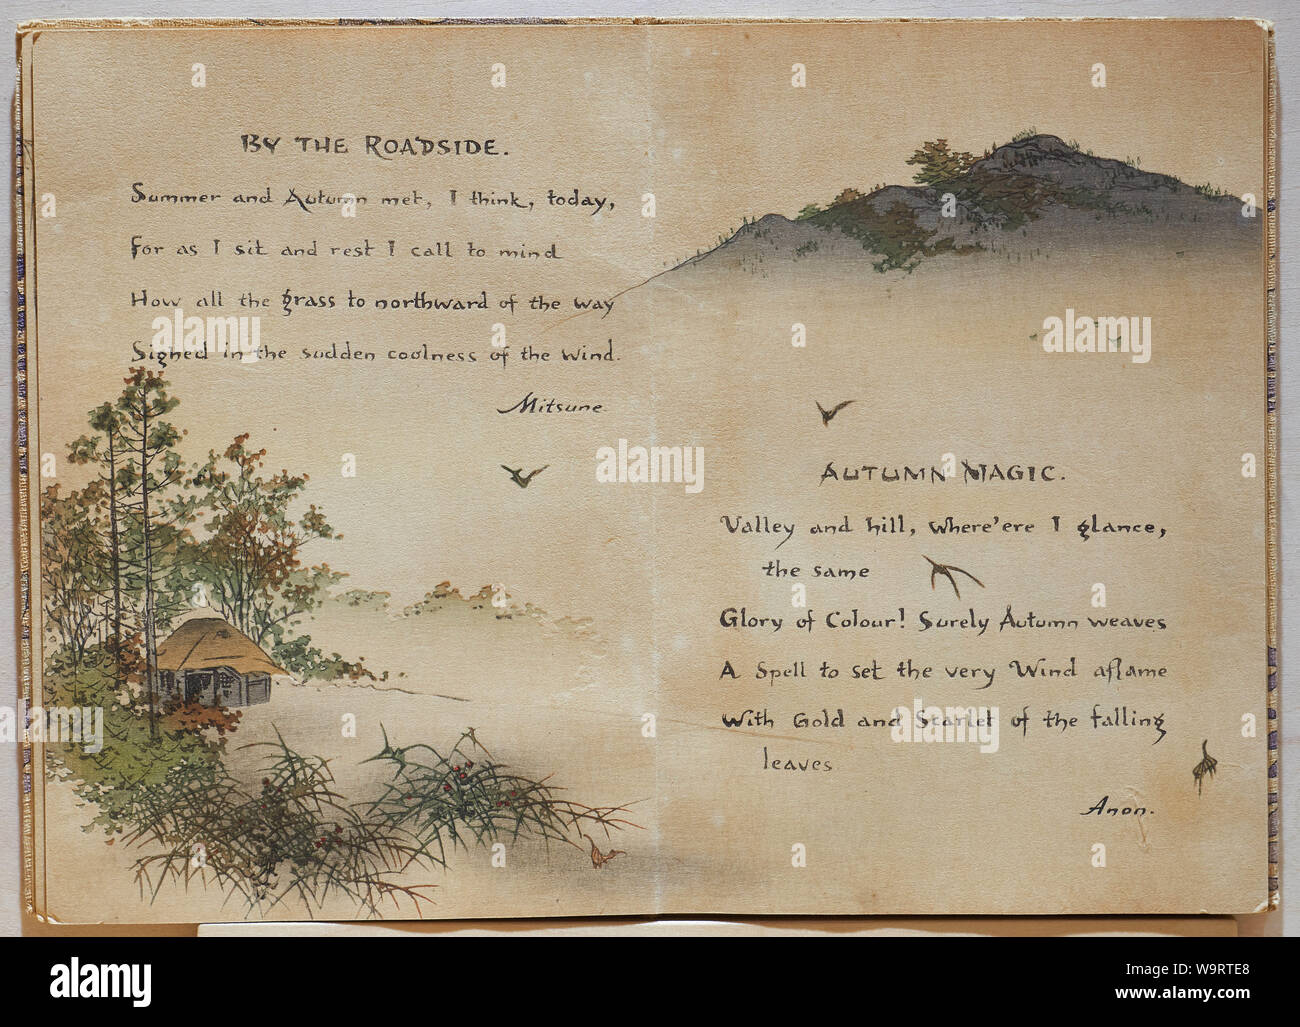 BY THE ROADSIDE.
Summer and Autumn met, I think, today,
For as I sit and rest I call to mind
How all the grass to northward of the way
Sighed in the sudden coolness of the wind.
Mitsune.
AUTUMN MAGIC.
Valley and hill, where'ere I glance,
the same
Glory of Colour! Surely Autumn weaves
A Spell to set the very Wind aflame
With Gold and Scarlet of the falling
leaves
Anon.
alamy
Image ID: W9RTE8
www.alamy.com